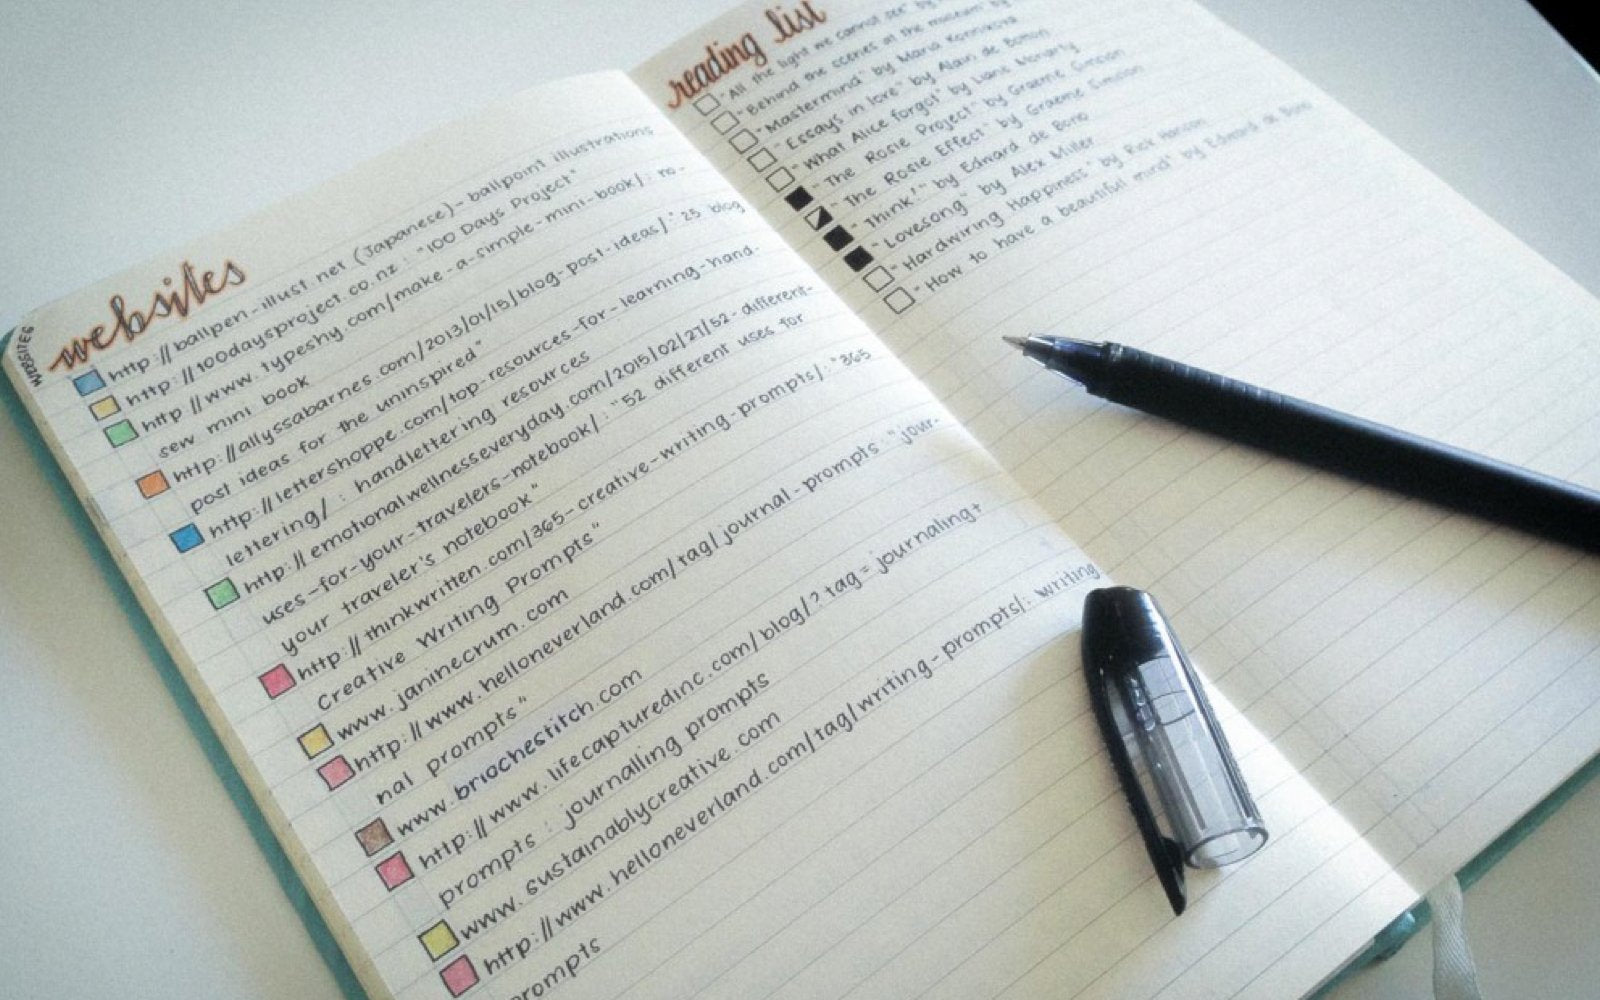 WEBSITES
websites
http://ballpen-illust.net (Japanese)- ballpoint illustrations
http://100daysproject.co.nz : "100 Days Project"
http://www.typeshy.com/make-a-simple-mini-book/ : no-
sew mini book
http://allyssabarnes.com/2013/01/15/blog-post-ideas/ : "25 blog
post ideas for the uninspired"
http://lettershoppe.com/top-resources-for-learning-hand-
lettering/ : handlettering resources
http://emotionalwellnesseveryday.com/2015/02/27/52-different-
uses-for-your-travelers-notebook/ : "52 different uses for
your traveler's notebook"
http://thinkwritten.com/365-creative-writing-prompts/ : "365
Creative Writing Prompts"
www.janinecrum.com
http://www.helloneverland.com/tag/journal-prompts : "jour-
nal prompts"
www.briochestitch.com
http://www.lifecapturedinc.com/blog/?tag=journaling+
prompts : journalling prompts
www.sustainablycreative.com
http://www.helloneverland.com/tag/writing-prompts/ : writing
prompts
reading list
"All the light we cannot see" by
"Behind the scenes at the museum" by
"Mastermind" by Maria Konnikova
"Essays in love" by Alain de Botton
"What Alice forgot" by Liane Moriarty
"The Rosie Project" by Graeme Simsion
"The Rosie Effect" by Graeme Simsion
"Think!" by Edward de Bono
"Lovesong" by Alex Miller
"Hardwiring Happiness" by Rick Hanson
"How to have a beautiful mind" by Edward de Bono